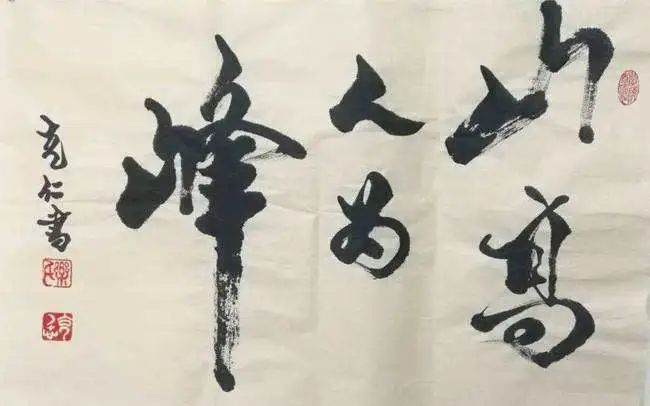 山高
人为
峰
克仁書